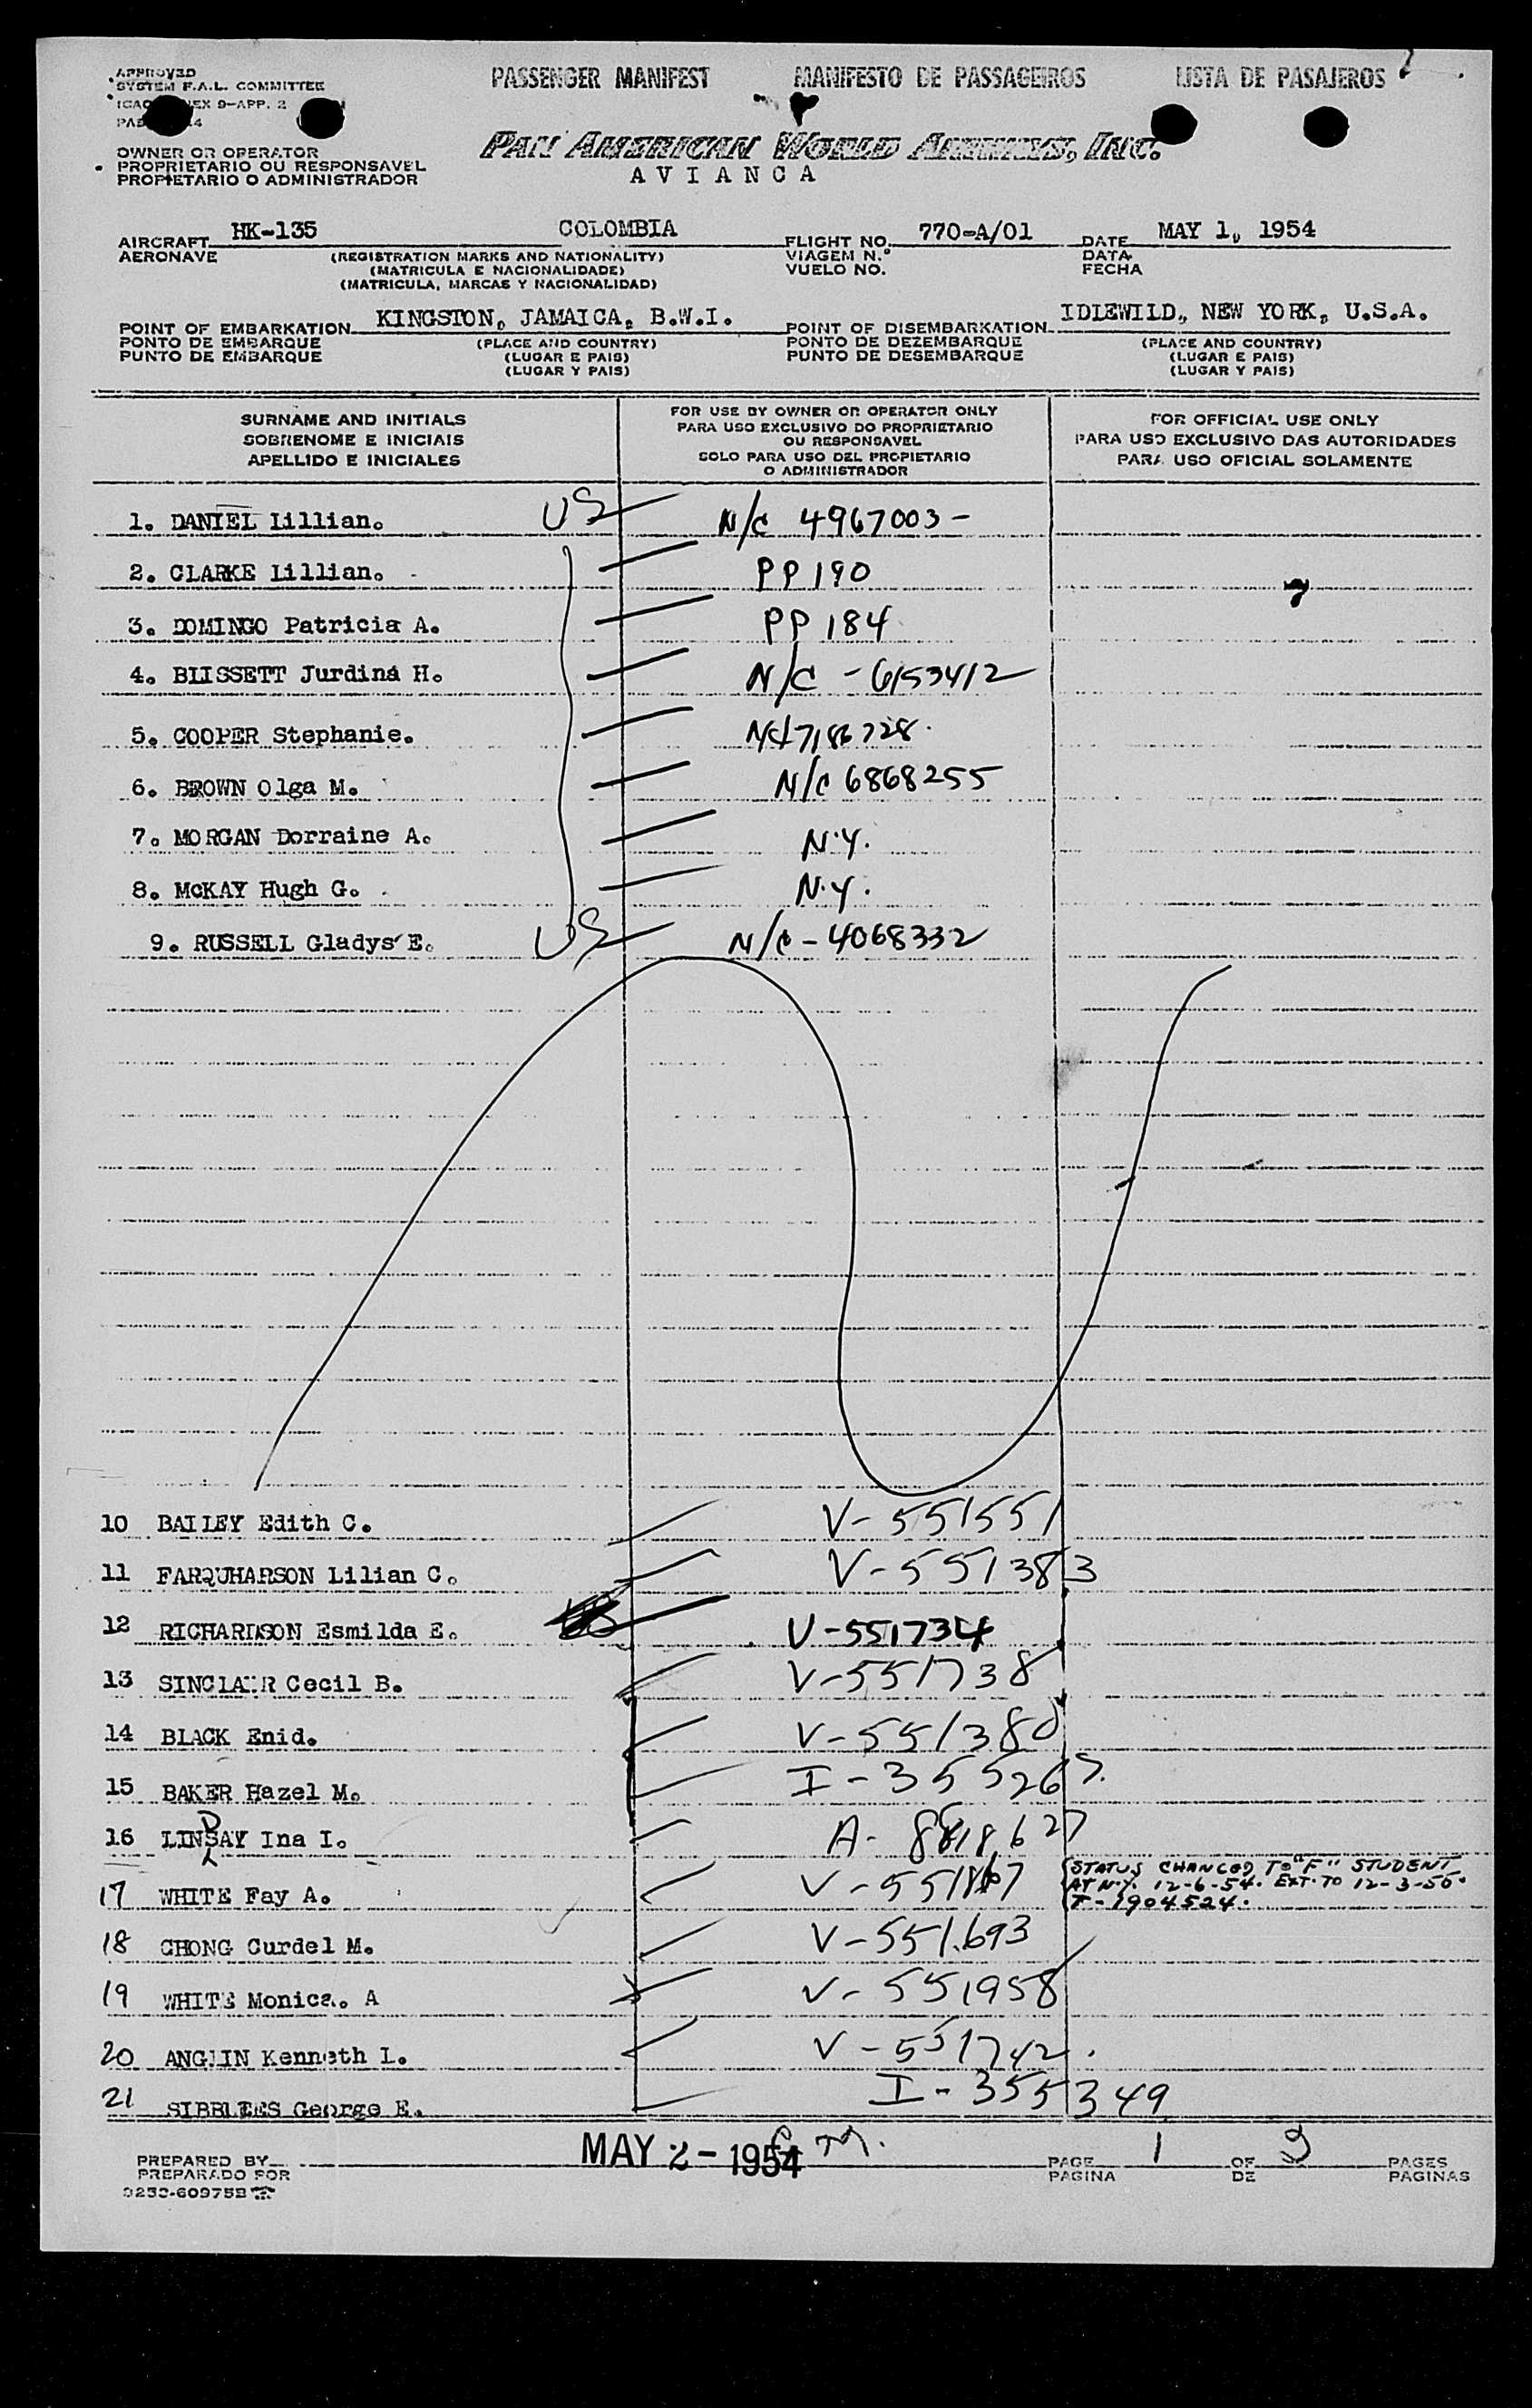 APPROVED
SYSTEM F.A.L. COMMITTEE
PASSENGER MANIFEST MANIFESTO DE PASSAGEIROS LISTA DE PASAJEROS
OWNER OR OPERATOR
PROPRIETARIO OU RESPONSAVEL
PROPIETARIO O ADMINISTRADOR
PAN AMERICAN WORLD AIRWAYS, INC.
AVIANCA
AIRCRAFT HK-135 COLOMBIA FLIGHT NO. 770-A/01 DATE MAY 1, 1954
AERONAVE (REGISTRATION MARKS AND NATIONALITY) VIAGEM N.° DATA
(MATRICULA E NACIONALIDADE) VUELO NO. FECHA
(MATRICULA, MARCAS Y NACIONALIDAD)
POINT OF EMBARKATION KINGSTON, JAMAICA, B.W.I. POINT OF DISEMBARKATION IDLEWILD, NEW YORK, U.S.A.
PONTO DE EMBARQUE (PLACE AND COUNTRY) PONTO DE DEZEMBARQUE (PLACE AND COUNTRY)
PUNTO DE EMBARQUE (LUGAR E PAIS) PUNTO DE DESEMBARQUE (LUGAR E PAIS)
(LUGAR Y PAIS) (LUGAR Y PAIS)
SURNAME AND INITIALS
SOBRENOME E INICIAIS
APELLIDO E INICIALES
FOR USE BY OWNER OR OPERATOR ONLY
PARA USO EXCLUSIVO DO PROPRIETARIO
OU RESPONSAVEL
SOLO PARA USO DEL PROPIETARIO
O ADMINISTRADOR
FOR OFFICIAL USE ONLY
PARA USO EXCLUSIVO DAS AUTORIDADES
PARA USO OFICIAL SOLAMENTE
1. DANIEL Lillian. US N/C 4967003-
2. CLARKE Lillian. PP 190
3. DOMINGO Patricia A. PP 184
4. BLISSETT Jurdina H. N/C - 6153412
5. COOPER Stephanie. N/C 7186728.
6. BROWN Olga M. N/C 6868255
7. MORGAN Dorraine A. N.Y.
8. McKAY Hugh G. N.Y.
9. RUSSELL Gladys E. US N/C - 4068332
10 BAILEY Edith C. V-551551
11 FARQUHARSON Lilian C. V-551383
12 RICHARDSON Esmilda E. V-551734
13 SINCLAIR Cecil B. V-551738
14 BLACK Enid. V-551380
15 BAKER Hazel M. I-355267.
16 LINDSAY Ina I. A-8818627
17 WHITE Fay A. V-551867 STATUS CHANGED TO "F" STUDENT
AT N.Y. 12-6-54. EXT. TO 12-3-55.
T-1904524.
18 CHONG Curdel M. V-551693
19 WHITE Monica. A V-551958
20 ANGLIN Kenneth L. V-551742.
21 SIBBLIES George E. I-355349
PREPARED BY MAY 2-1954 PAGE 1 OF PAGES
PREPARADO POR PAGINA DE PAGINAS